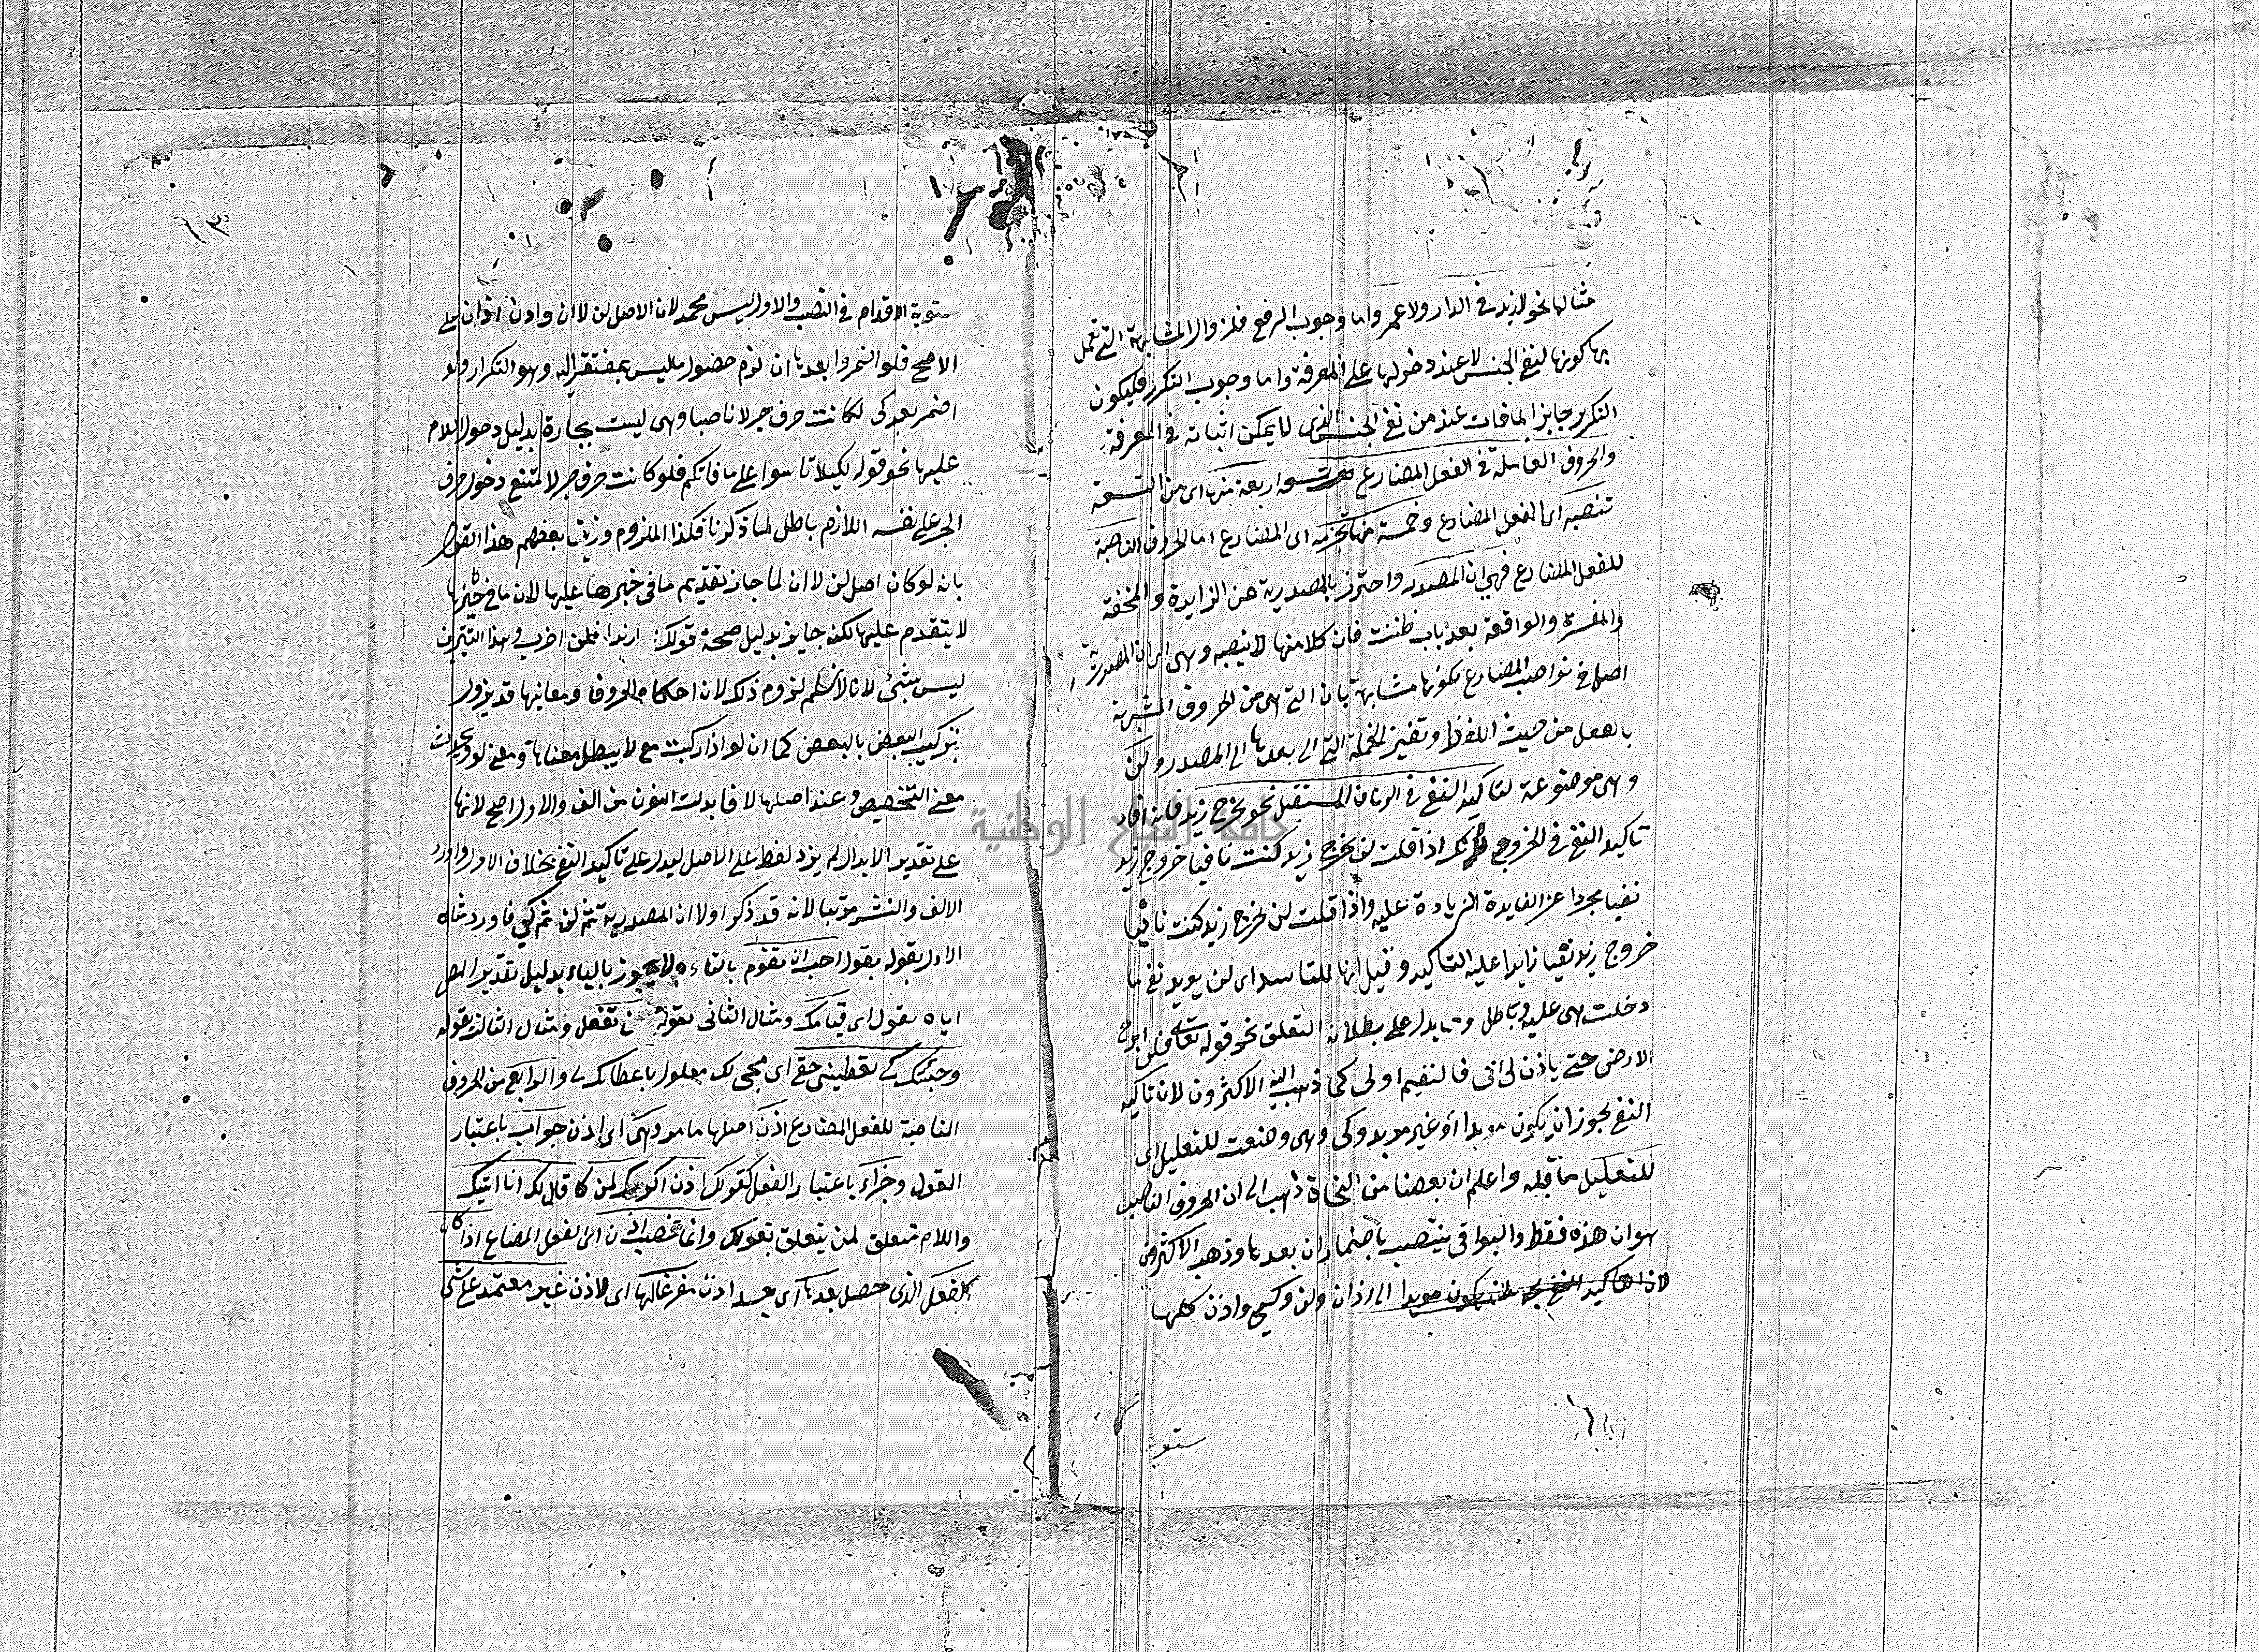 مثالها نحو لا زيد في الدار ولا عمرو واما وجوب الرفع فلزوال المشابهة التي تعمل
بها كونها لنفي الجنس لا عند دخولها على المعرفة واما وجوب التكرر فليكون
التكرير جابزا لما فات عند من نفي الجنس الذي لا يمكن اثباته في المعرفة
والحروف العاملة في الفعل المضارع تسعة اربعة منها اي من التسعة
تنصبه اي الفعل المضارع وخمسة منها تجزمه اي المضارع اما الحروف الناصبة
للفعل المضارع فهي ان المصدر واحترز بالمصدرية عن الزايدة والمخففة
والمفسرة والواقعة بعد باب ظننت فان كلا منها لا ينصبه وهي اي ان المصدرية
اصل في نواصب المضارع لكونها مشابهة بان التي هي من الحروف المشبهة
بالفعل من حيث اللفظ وتغيير الجملة التي الى بعدها الى المصدر ولن
وهي موضوعة لتاكيد النفي في الزمان المستقبل نحو لن يخرج زيد فانه افاد
تاكيد النفي في الخروج لانك اذا قلت لا يخرج زيد كنت نافيا خروج زيد
نفيا مجردا عن الفايدة الزيادة عليه واذا قلت لن يخرج زيد كنت نافيا
خروج زيد نفيا زايدا عليه التاكيد وقيل انها للتا اي لن يويد نفي ما
دخلت هي عليه وباطل وما يدل على بطلانه التعلق نحو قوله تعالى فلن ابرح
الارض حتى ياذن لي ابي فالنفيم اولى كما ذهب اليه الاكثرون لان تاكيد
النفي يجوز ان يكون موبدا او غير موبد وكي وهي وضعت للتعليل اي
للتعليل ما قبله واعلم ان بعضا من النحاة ذهب الى ان الحروف الناصب
هو ان هذه فقط والبواقي ينتصب باضمار ان بعدها وذهب الاكثرون
الى اذ ان ولن وكي واذن كلها
ستوية
ستوية الاقدام في النصب والاول ليس محمد لان الاصل لن لا ان واذن اذ ان على
الاصح فلو اضمروا بعدها ان لزم حضول ما ليس بمفتقر اليه وهو التكرار ولو
اضمر بعد كي لكانت حرف جر لا ناصبا وهي ليست بجارة بدليل دخول اللام
عليها نحو قوله لكيلا تاسوا على ما فاتكم فلو كانت حرف جر لامتنع دخول حرف
الجر على نفسه اللازم باطل لما ذكرنا فكذا الملزوم وزيف بعضهم هذا القول
بانه لو كان اصل لن لا ان لما جاز تقديم ما في خبرها عليها لان ما في حيزها
لا يتقدم عليها لكنه جايز بدليل صحة قولك زيدا فلن اضرب وهذا التزييف
ليس بشئ لانا لا نسلم لزوم ذلك لان احكام الحروف ومعانيها قد يزول
بتركيب البعض بالبعض كما ان لو اذا ركبت مع لا يبطل معناها ومعنى لو ويحدث
معنى التخصيص وعند اصلها لا فابدلت النون من الف والاول اصح لانها
على تقدير الابدال لم يزد لفظ على الاصل ليدل على تاكيد النفي بخلاف الاول واورد
الالف والنشر مرتبا لانه قد ذكر اولا ان المصدرية ثم لن ثم كي فاورد مثاله
الاول بقوله يقول احب ان تقوم بالتاء ولا يجوز بالياء بدليل تقدير المص
اياه بقول اي قيامك ومثال الثاني بقوله لن تفعل ومثال الثالث بقوله
وجئتك كي تعطيني حقي اي مجي لك معلول باعطائك لي والرابع من الحروف
الناصبة للفعل المضارع اذن اصلها ما مر وهي اي اذن جواب باعتبار
القول وجزآء باعتبار الفعل كقولك اذن اكرمك لمن قال لك انا اتيك
واللام متعلق لمن يتعلق بقولك وانما تنصب اذن اي الفعل المضاع اذا كان
الفعل الذي حصل بعدها اي بعد اذن مفرغا لها اي لاذن غير معتمد على شئ